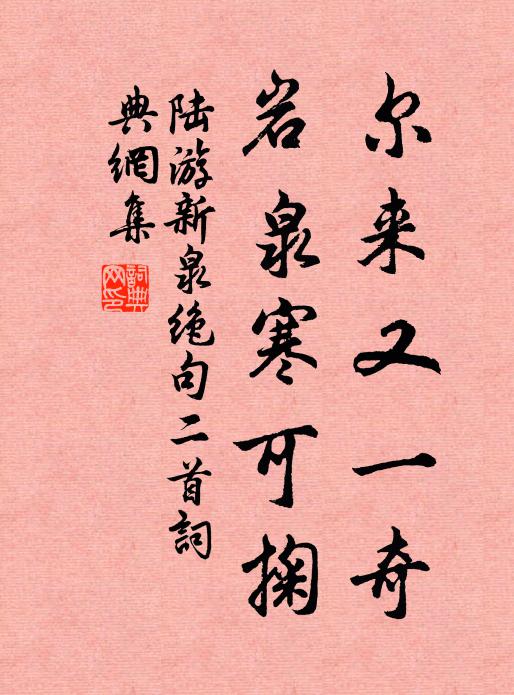 尔来又一奇
岩泉寒可掬
陆游新泉绝句二首詞
典網集
詞典网印